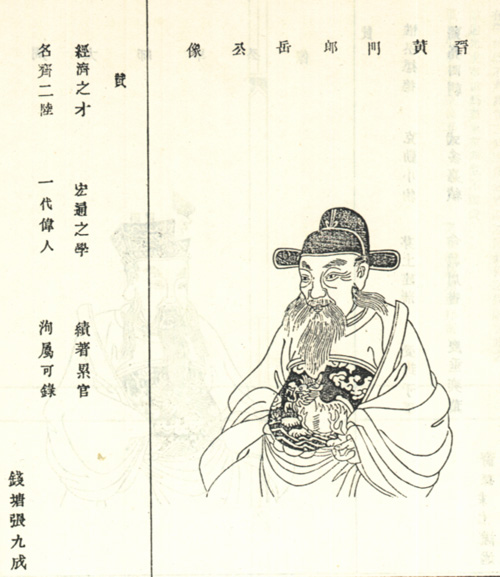 晉黃門郎岳公像
贊
經濟之才 宏通之學 績著累官
名齊二陸 一代偉人 洵屬可錄
錢塘張九成